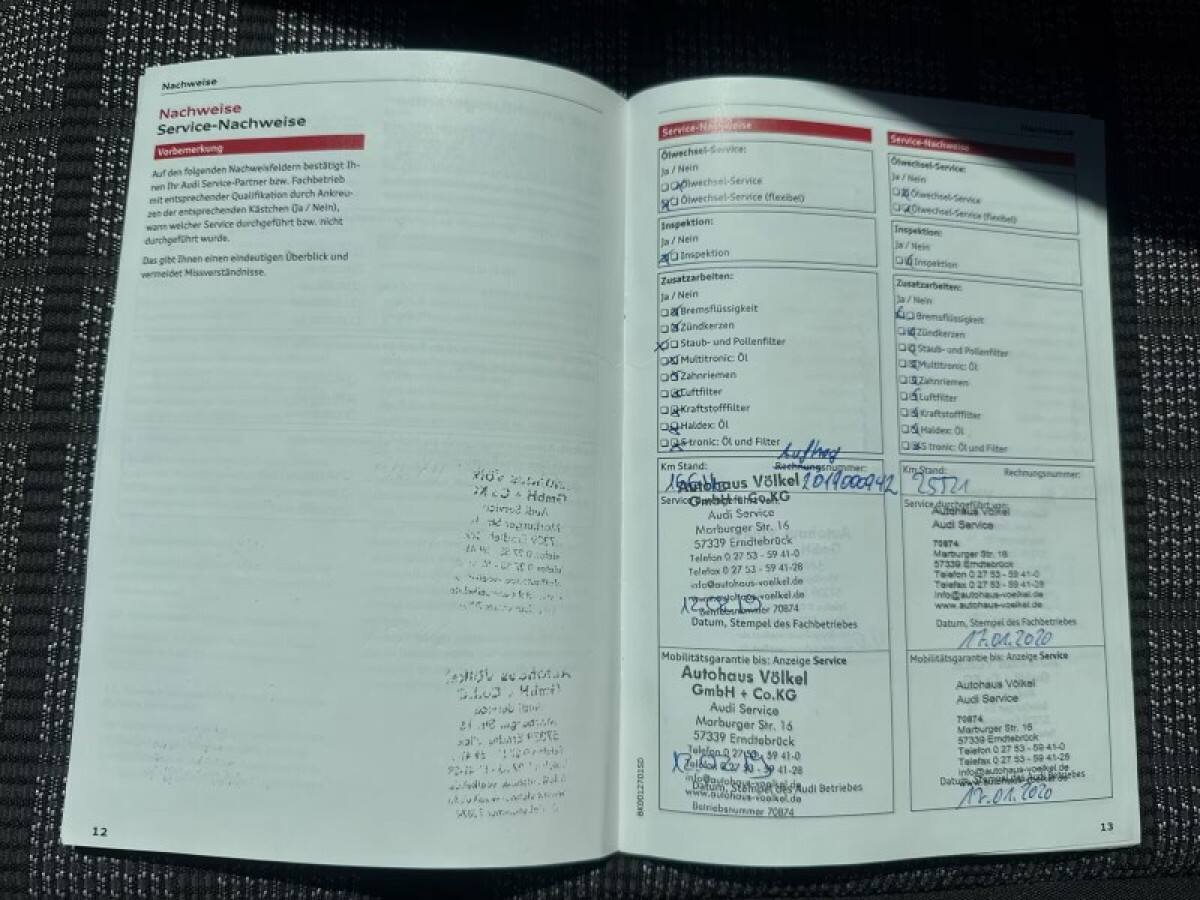 Nachweise
Nachweise
Service-Nachweise
Vorbemerkung
Auf den folgenden Nachweisfeldern bestätigt Ih-
ren Ihr Audi Service-Partner bzw. Fachbetrieb
mit entsprechender Qualifikation durch Ankreu-
zen der entsprechenden Kästchen (Ja / Nein),
wann welcher Service durchgeführt bzw. nicht
durchgeführt wurde.
Das gibt Ihnen einen eindeutigen Überblick und
vermeidet Missverständnisse.
12
Nachweise
Service-Nachweise
Ölwechsel-Service:
Ja / Nein
Ölwechsel-Service
Ölwechsel-Service (flexibel)
Inspektion:
Ja / Nein
Inspektion
Zusatzarbeiten:
Ja / Nein
Bremsflüssigkeit
Zündkerzen
Staub- und Pollenfilter
Multitronic: Öl
Zahnriemen
Luftfilter
Kraftstofffilter
Haldex: Öl
S tronic: Öl und Filter
Km Stand: Rechnungsnummer:
2019000942
Autohaus Völkel
GmbH + Co.KG
Audi Service
Marburger Str. 16
57339 Erndtebrück
Telefon 0 27 53 - 59 41-0
Telefax 0 27 53 - 59 41-28
info@autohaus-voelkel.de
www.autohaus-voelkel.de
Betriebsnummer 70874
Datum, Stempel des Fachbetriebes
Mobilitätsgarantie bis: Anzeige Service
Autohaus Völkel
GmbH + Co.KG
Audi Service
Marburger Str. 16
57339 Erndtebrück
Telefon 0 27 53 - 59 41-0
Telefax 0 27 53 - 59 41-28
info@autohaus-voelkel.de
Datum, Stempel des Audi Betriebes
www.autohaus-voelkel.de
Betriebsnummer 70874
Service-Nachweise
Ölwechsel-Service:
Ja / Nein
Ölwechsel-Service
Ölwechsel-Service (flexibel)
Inspektion:
Ja / Nein
Inspektion
Zusatzarbeiten:
Ja / Nein
Bremsflüssigkeit
Zündkerzen
Staub- und Pollenfilter
Multitronic: Öl
Zahnriemen
Luftfilter
Kraftstofffilter
Haldex: Öl
S tronic: Öl und Filter
Km Stand: Rechnungsnummer:
Service durchgeführt von:
Autohaus Völkel
Audi Service
70874
Marburger Str. 16
57339 Erndtebrück
Telefon 0 27 53 - 59 41-0
Telefax 0 27 53 - 59 41-28
info@autohaus-voelkel.de
www.autohaus-voelkel.de
Datum, Stempel des Fachbetriebes
17.01.2020
Mobilitätsgarantie bis: Anzeige Service
Autohaus Völkel
Audi Service
70874
Marburger Str. 16
57339 Erndtebrück
Telefon 0 27 53 - 59 41-0
Telefax 0 27 53 - 59 41-28
info@autohaus-voelkel.de
Datum, Stempel des Audi Betriebes
www.autohaus-voelkel.de
17.01.2020
13